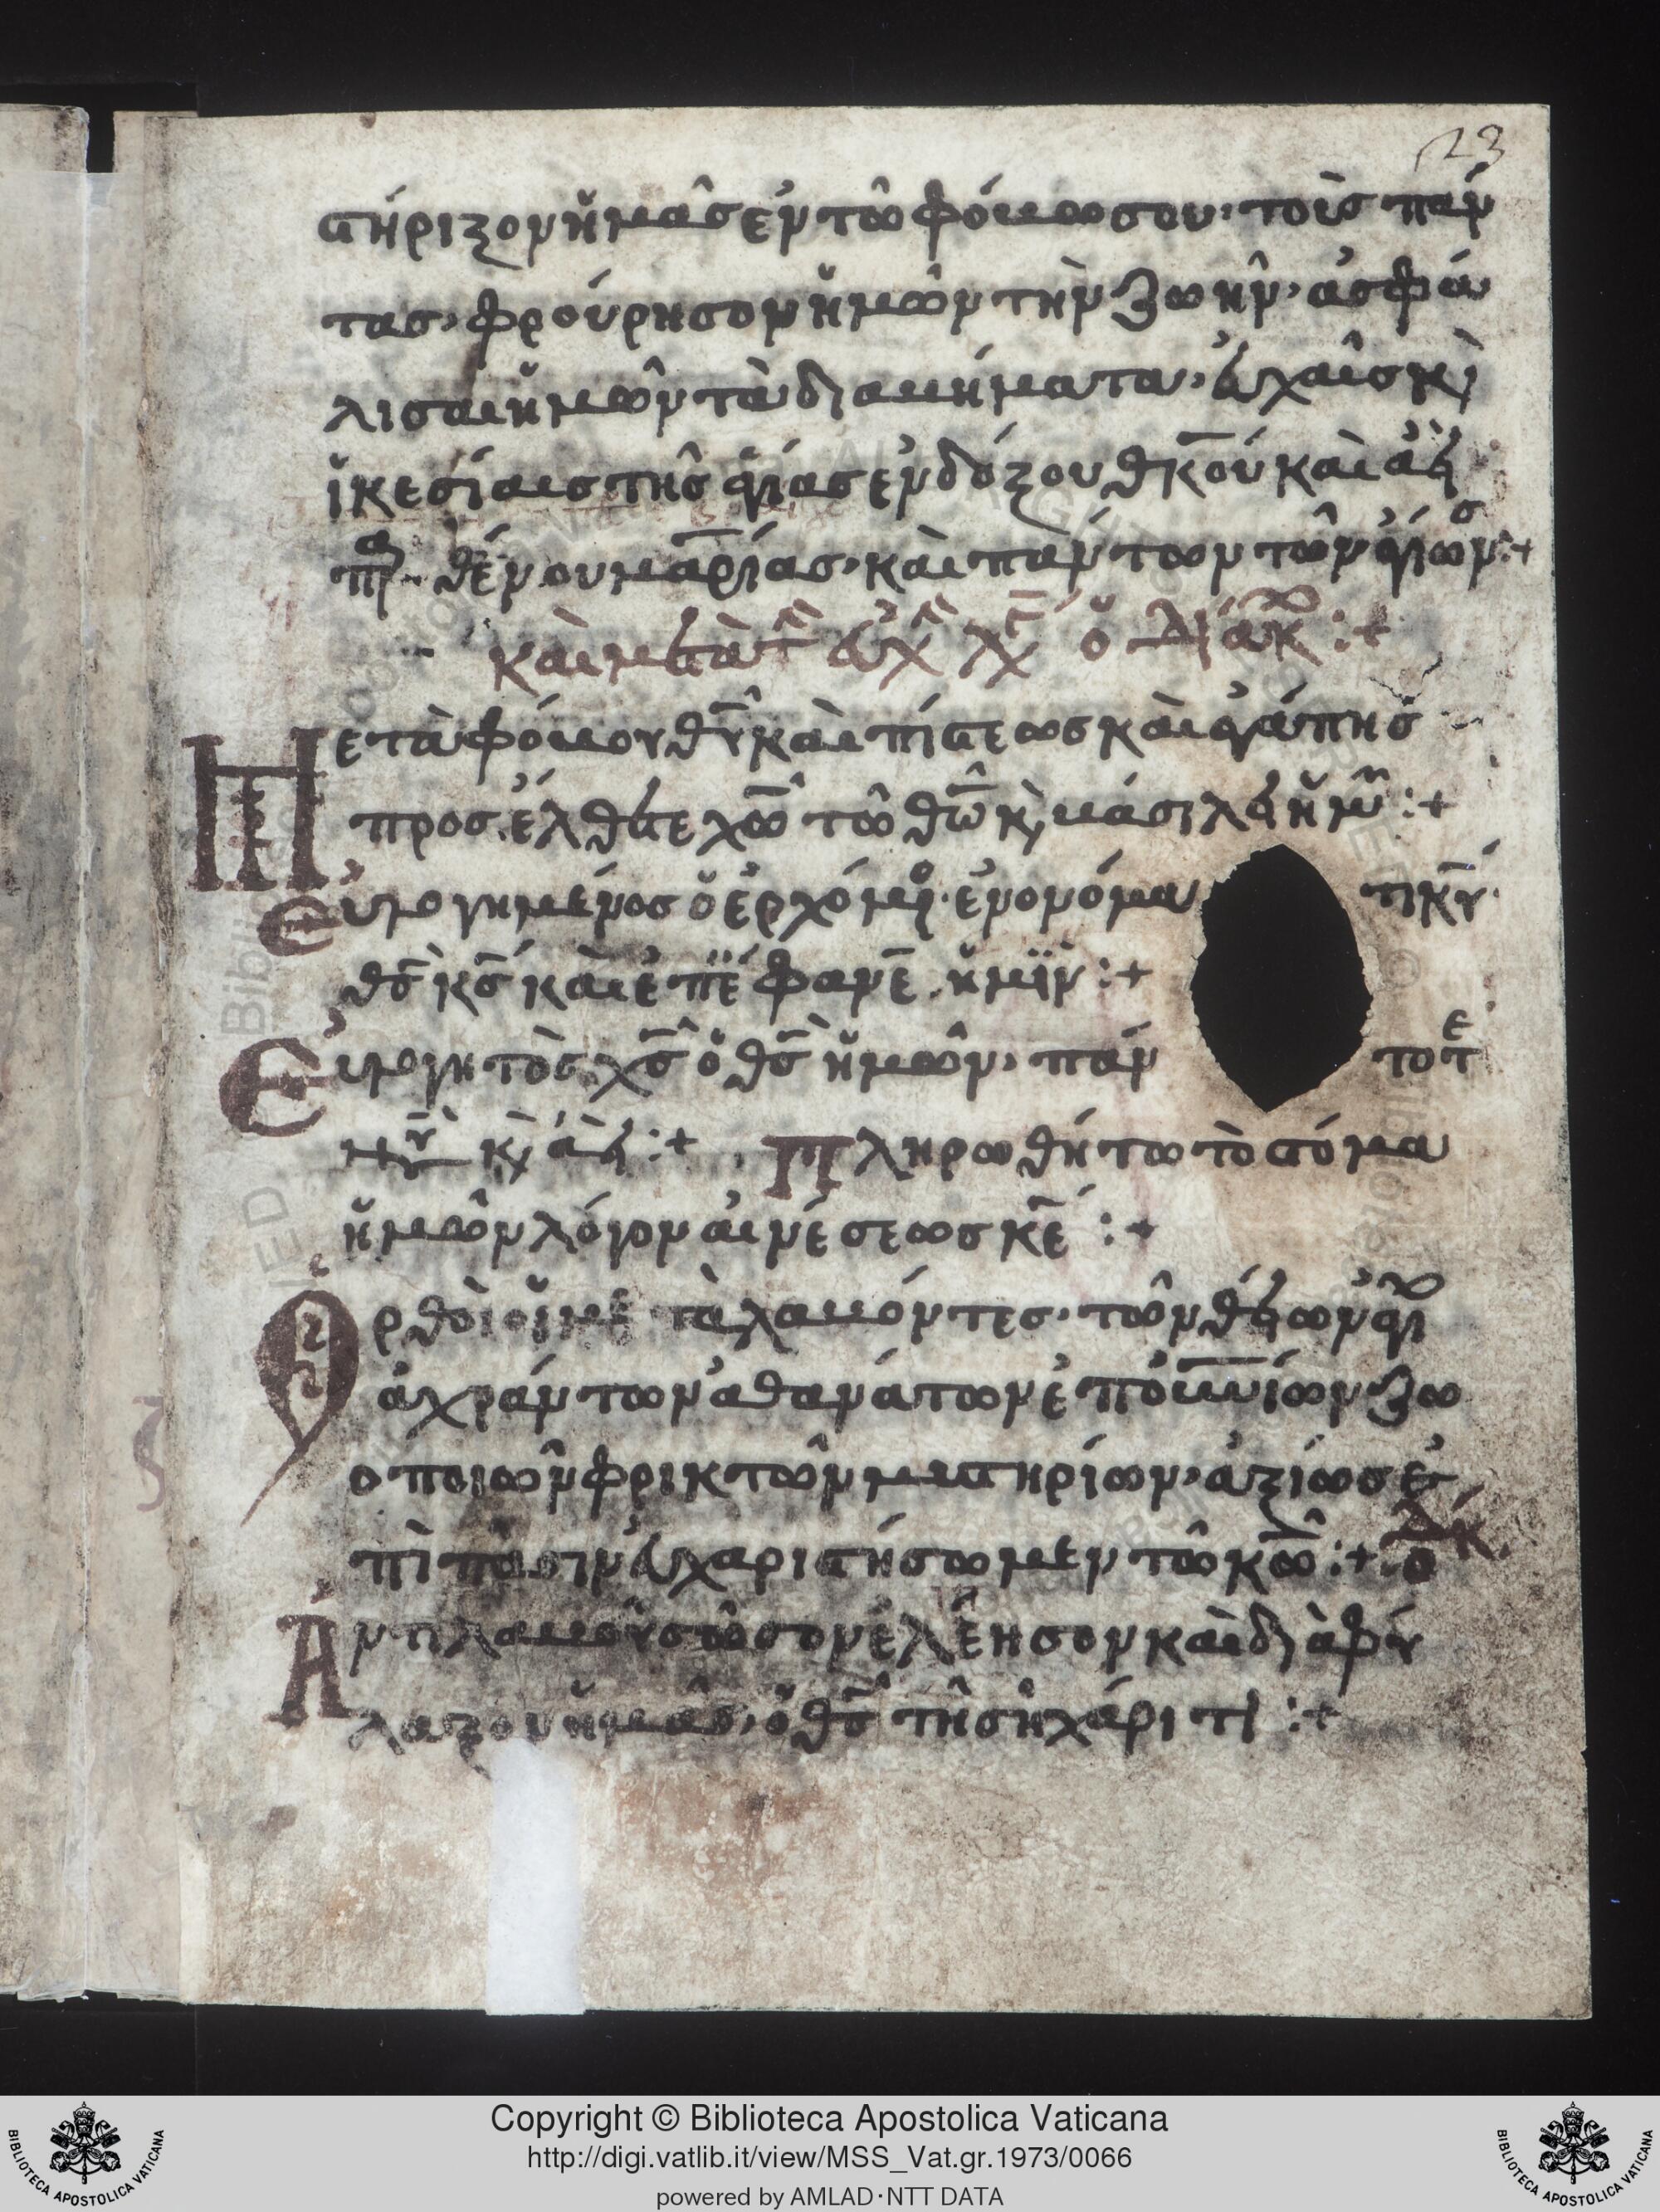 23
στήριξον ἡμᾶς ἐν τῶ φόβω σου· τοὺς πάν
τας· φρούρησον ἡμῶν τὴν ζωήν· ἀσφά
λισαι ἡμῶν τὰ διαβήματα· εὐχαῖς κ(αὶ)
ἱκεσίαις τῆς ἁγίας ἐνδόξου θκ̅ου καὶ ἀει
π̅ρ θένου μαρίας· καὶ πάντων τῶν ἁγίων σ :+
καὶ μετὰ τ εὐχ λγ ὁ διάκ :+
Μετὰ φόβου θυ̅ καὶ πίστεως καὶ ἀγάπης
προσέλθετε χω̅ τῶ θω̅ κ(αὶ) βασιλεῖ ἡμῶ :+
Εὐλογημένος ὁ ἐρχόμεν ἐν ὀνόμα τι κυ̅·
θς̅ κς̅ καὶ ἐπέφανε ἡμῖν :+
Εὐλογητὸς χς̅ ὁ θς̅ ἡμῶν· πάν τοτε
νῦ κ(αὶ) ἀεὶ :+ Πληρωθήτω τὸ στόμα
ἡμῶν λόγον αἰνέσεως κε̅ :+
Ὀρθοὶ οἱ με ταλαβόντες· τῶν θείων ἁγί
ἀχράντων ἀθανάτων ἐπουνίων ζω
οποιῶν φρικτῶν μυστηρίων· ἀξίως ἐ
πὶ πᾶσιν εὐχαριστήσωμεν τῶ κω̅ :+ ὁ δκ
Ἀντιλαβοῦ σῶσον ἐλέησον καὶ διαφύ
λαξον ἡμᾶς· ὁ θς̅ τῆ σῆ χάριτι :+
Copyright © Biblioteca Apostolica Vaticana
http://digi.vatlib.it/view/MSS_Vat.gr.1973/0066
powered by AMLAD·NTT DATA
BIBLIOTECA APOSTOLICA VATICANA
BIBLIOTECA APOSTOLICA VATICANA